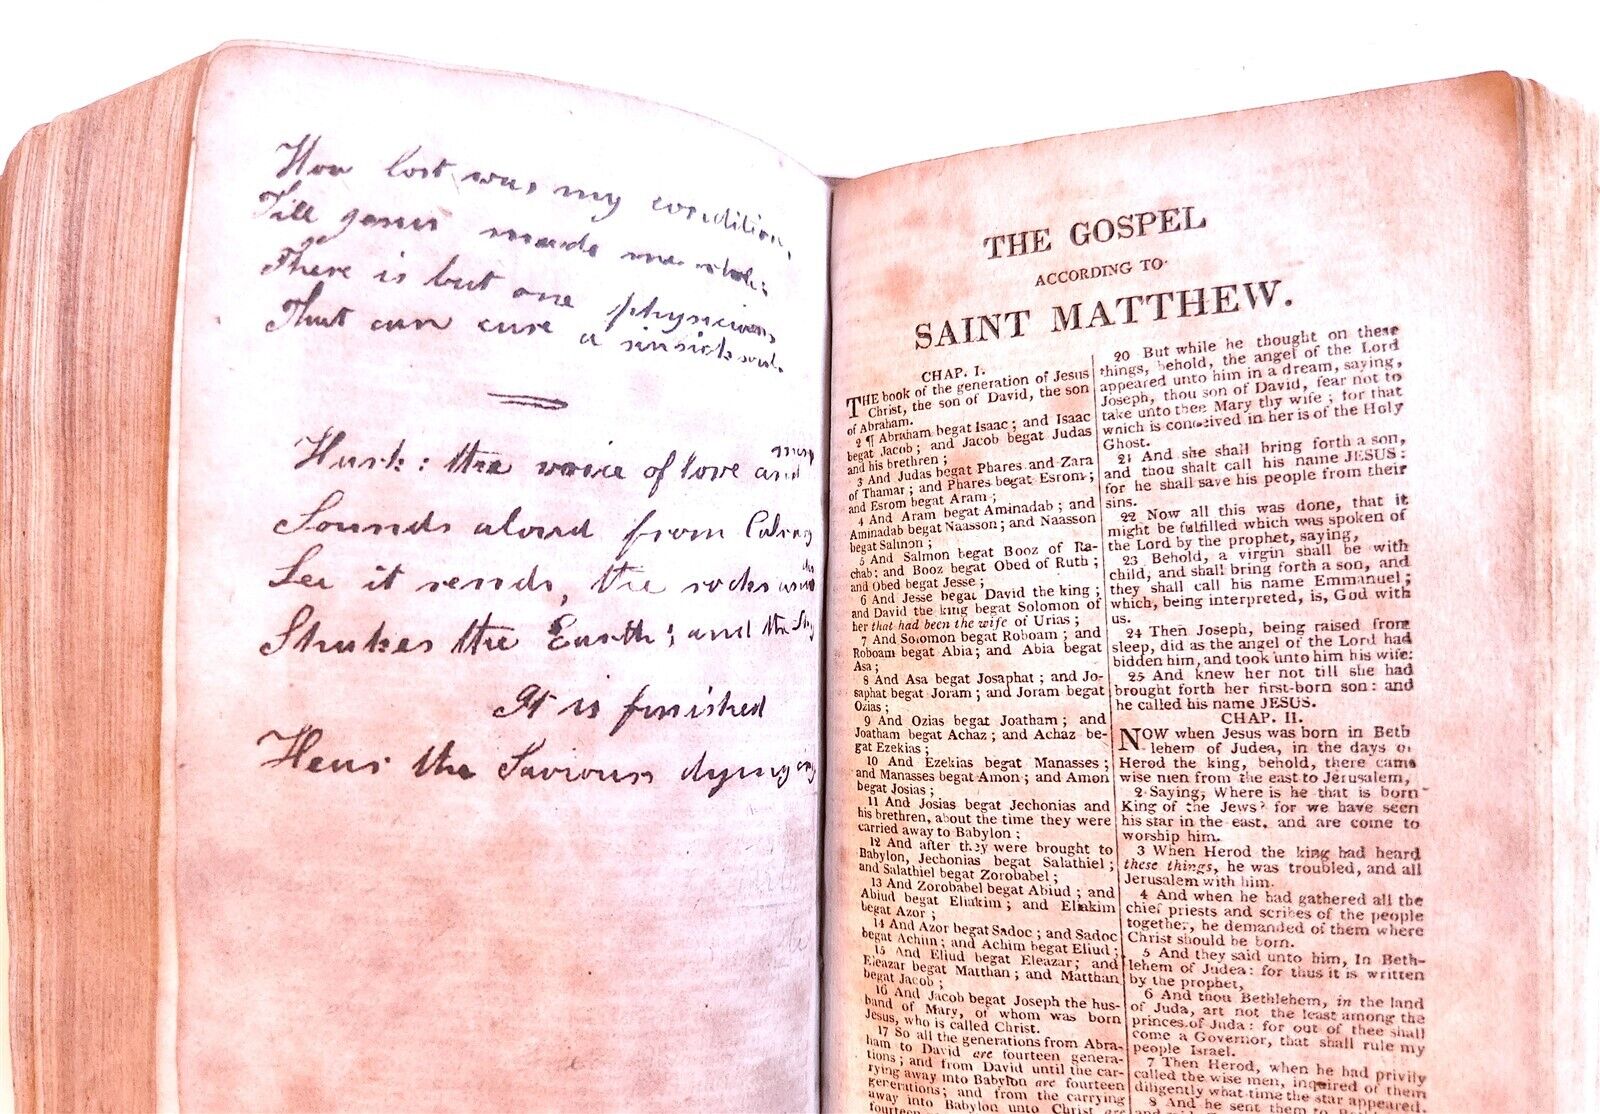 How lost was my condition,
Till Jesus made me whole:
There is but one physicians
That can cure a sinsick soul.
Hark: the voice of love and mercy
Sounds aloud from Calvary
See it rends, the rocks asunder
Shakes the Earth; and the Sky
It is finished
Hear the Saviour dying cry
THE GOSPEL
ACCORDING TO
SAINT MATTHEW.
CHAP. I.
THE book of the generation of Jesus
Christ, the son of David, the son
of Abraham.
2 ¶ Abraham begat Isaac; and Isaac
begat Jacob; and Jacob begat Judas
and his brethren;
3 And Judas begat Phares and Zara
of Thamar; and Phares begat Esrom;
and Esrom begat Aram;
4 And Aram begat Aminadab; and
Aminadab begat Naasson; and Naasson
begat Salmon;
5 And Salmon begat Booz of Ra-
chab; and Booz begat Obed of Ruth;
and Obed begat Jesse;
6 And Jesse begat David the king;
and David the king begat Solomon of
her that had been the wife of Urias;
7 And Solomon begat Roboam; and
Roboam begat Abia; and Abia begat
Asa;
8 And Asa begat Josaphat; and Jo-
saphat begat Joram; and Joram begat
Ozias;
9 And Ozias begat Joatham; and
Joatham begat Achaz; and Achaz be-
gat Ezekias;
10 And Ezekias begat Manasses;
and Manasses begat Amon; and Amon
begat Josias;
11 And Josias begat Jechonias and
his brethren, about the time they were
carried away to Babylon;
12 And after they were brought to
Babylon, Jechonias begat Salathiel;
and Salathiel begat Zorobabel;
13 And Zorobabel begat Abiud; and
Abiud begat Eliakim; and Eliakim
begat Azor;
14 And Azor begat Sadoc; and Sadoc
begat Achim; and Achim begat Eliud;
15 And Eliud begat Eleazar; and
Eleazar begat Matthan; and Matthan
begat Jacob;
16 And Jacob begat Joseph the hus-
band of Mary, of whom was born
Jesus, who is called Christ.
17 So all the generations from Abra-
ham to David are fourteen genera-
tions; and from David until the car-
rying away into Babylon are fourteen
generations; and from the carrying
away into Babylon unto Christ are
fourteen
20 But while he thought on these
things, behold, the angel of the Lord
appeared unto him in a dream, saying,
Joseph, thou son of David, fear not to
take unto thee Mary thy wife; for that
which is conceived in her is of the Holy
Ghost.
21 And she shall bring forth a son,
and thou shalt call his name JESUS:
for he shall save his people from their
sins.
22 Now all this was done, that it
might be fulfilled which was spoken of
the Lord by the prophet, saying,
23 Behold, a virgin shall be with
child, and shall bring forth a son, and
they shall call his name Emmanuel;
which, being interpreted, is, God with
us.
24 Then Joseph, being raised from
sleep, did as the angel of the Lord had
bidden him, and took unto him his wife:
25 And knew her not till she had
brought forth her first-born son: and
he called his name JESUS.
CHAP. II.
NOW when Jesus was born in Beth
lehem of Judea, in the days of
Herod the king, behold, there came
wise men from the east to Jerusalem,
2 Saying, Where is he that is born
King of the Jews? for we have seen
his star in the east, and are come to
worship him.
3 When Herod the king had heard
these things, he was troubled, and all
Jerusalem with him.
4 And when he had gathered all the
chief priests and scribes of the people
together, he demanded of them where
Christ should be born.
5 And they said unto him, In Beth-
lehem of Judea: for thus it is written
by the prophet,
6 And thou Bethlehem, in the land
of Juda, art not the least among the
princes of Juda: for out of thee shall
come a Governor, that shall rule my
people Israel.
7 Then Herod, when he had privily
called the wise men, inquired of them
diligently what time the star appeared.
8 And he sent them to